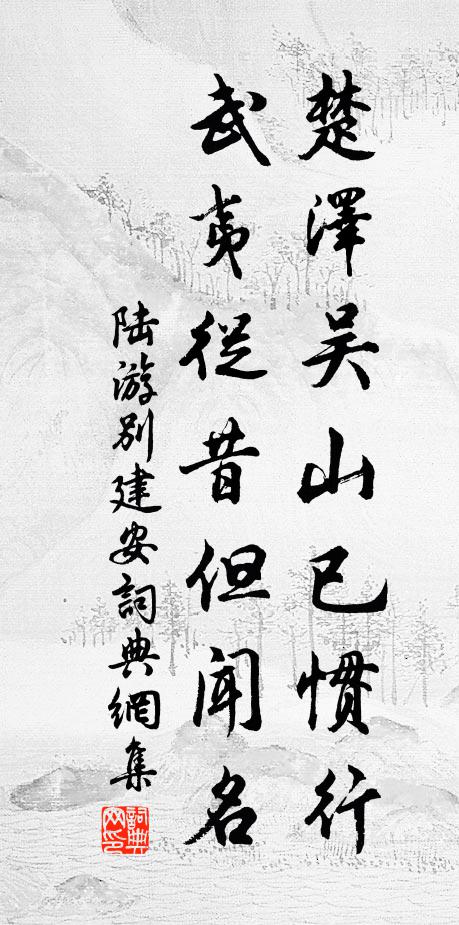 楚澤吴山已慣行
武夷從昔但聞名
陆游别建安詞典網集
詞典网印